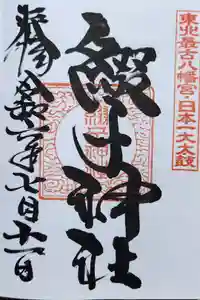 東北最古八幡宮・日本一大太鼓
綴子神社
奉拝 令和六年七月十一日